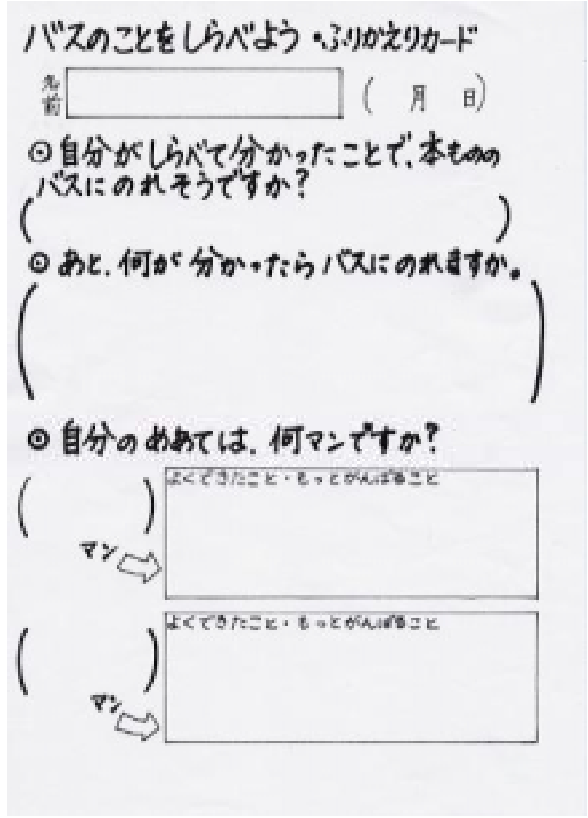 バスのことをしらべよう・ふりかえりカード
名前 ( 月 日)
◎自分がしらべて分かったことで、本ものの
バスにのれそうですか?
( )
◎あと、何が分かったらバスにのれますか。
( )
◎自分のめあては、何マンですか?
よくできたこと・もっとがんばること
( )
マン
よくできたこと・もっとがんばること
( )
マン